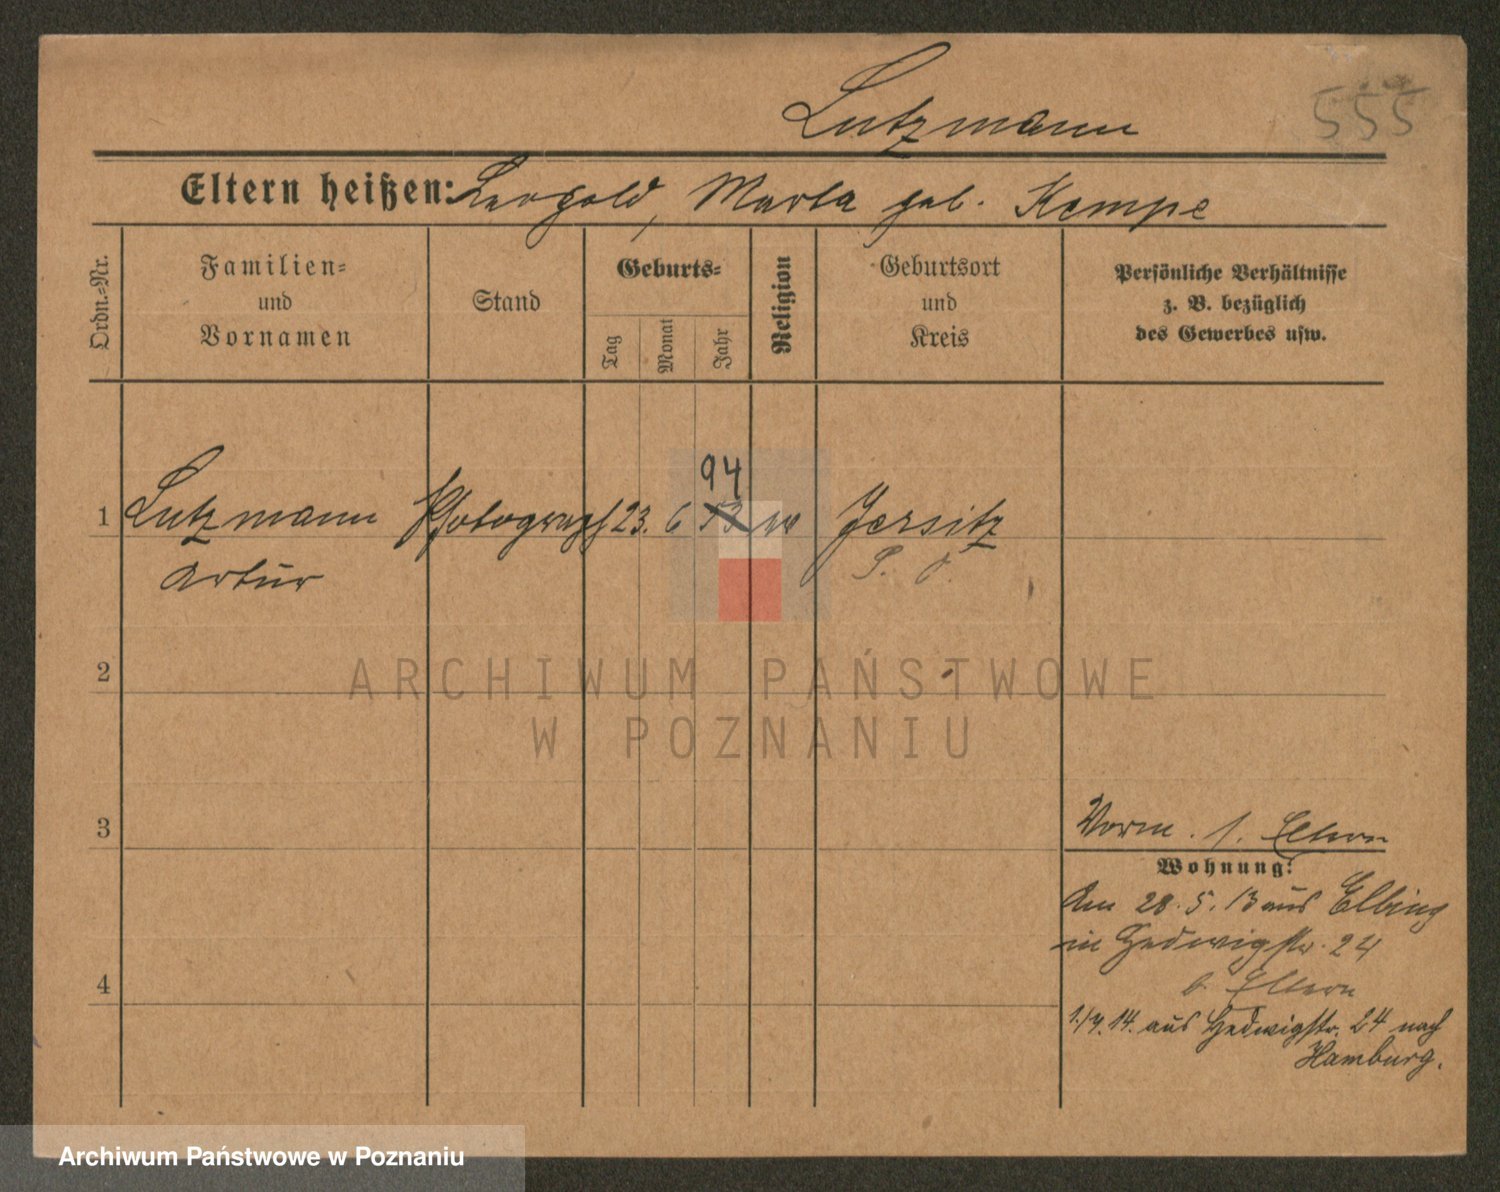 Lutzmann
555
Eltern heißen: Leopold, Marta geb. Kempe
Ordn.=Nr.
Familien=
und
Vornamen
Stand
Geburts=
Tag
Monat
Jahr
Religion
Geburtsort
und
Kreis
Persönliche Verhältnisse
z. B. bezüglich
des Gewerbes usw.
94
1 Lutzmann Photograph 23. 6 13 ev Jersitz
Artur P.
2
ARCHIWUM PAŃSTWOWE
W POZNANIU
3
Vorm. s. Eltern
Wohnung:
Am 28.5.13 aus Elbing
in Hedwigstr. 24
b. Eltern
4
1./4.14. aus Hedwigstr. 24 nach
Hamburg.
Archiwum Państwowe w Poznaniu